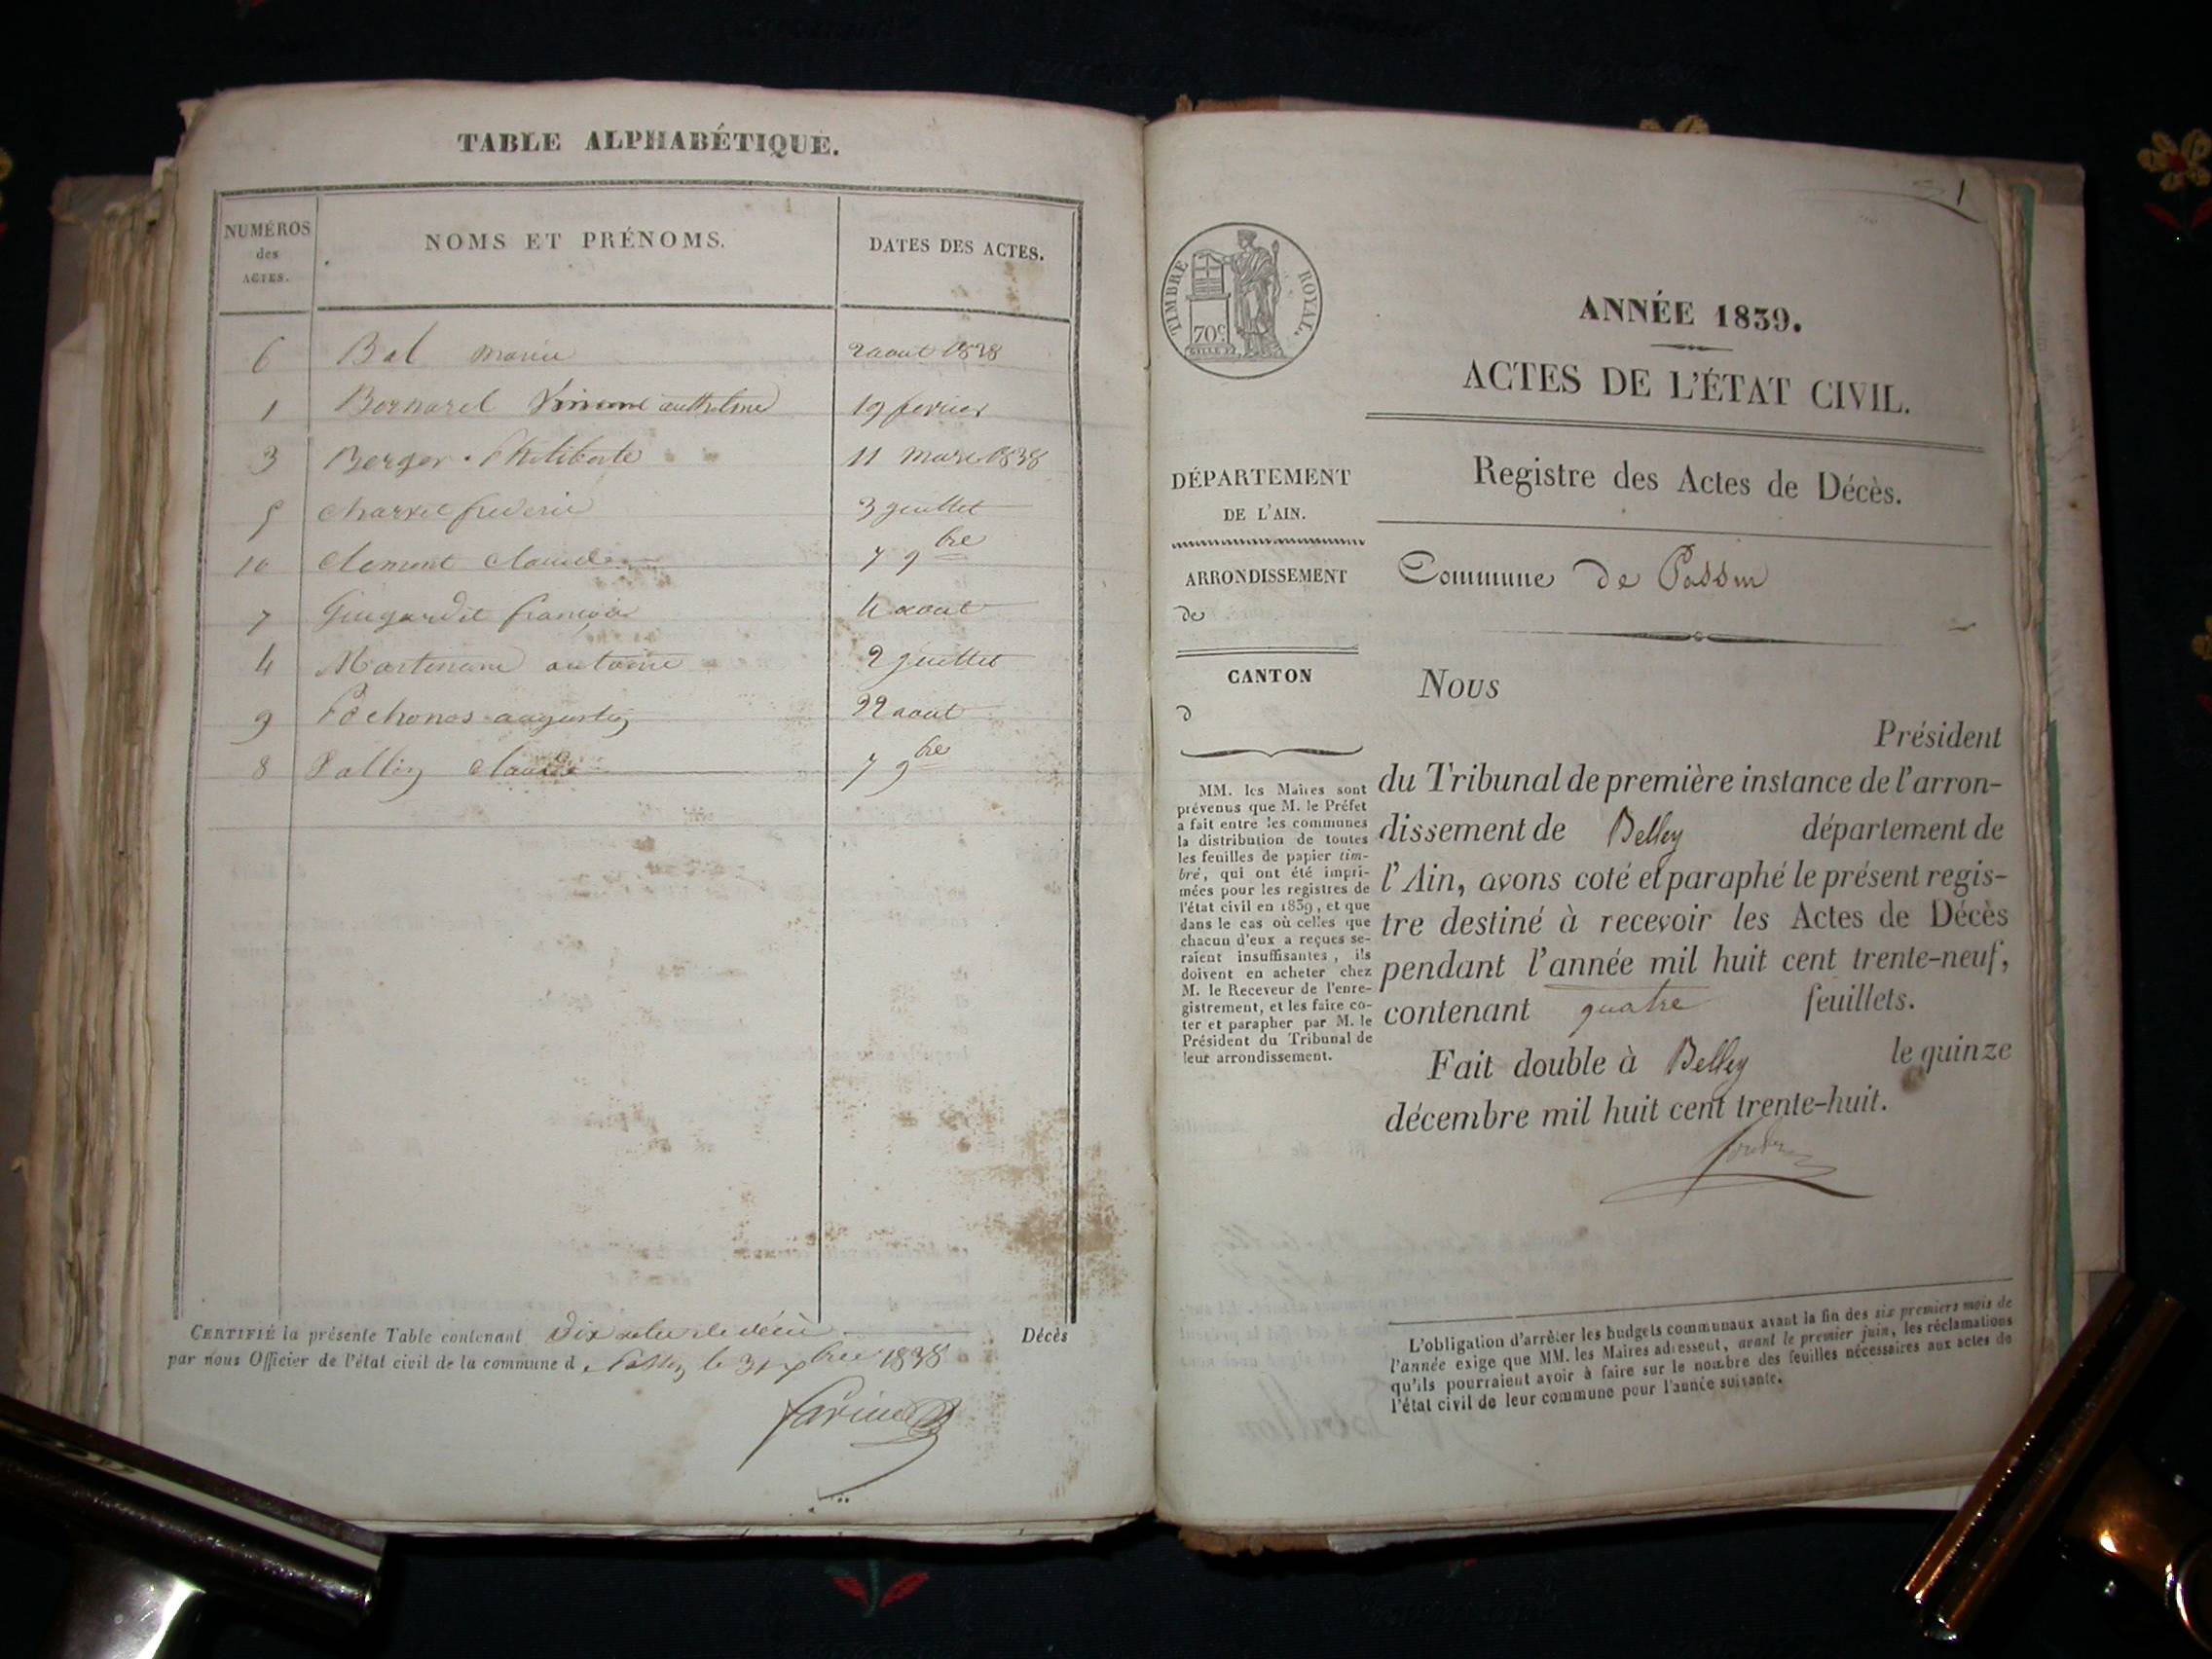 TABLE ALPHABÉTIQUE.
NUMÉROS des ACTES.
NOMS ET PRÉNOMS.
DATES DES ACTES.
6 Bal marie 2 aout 1838
1 Bernard anthelme 19 fevrier
3 Berger Philiberte 11 mars 1838
5 Charvet frederic 3 juillet
10 Clement Claude 7 9bre
7 françois 4 aout
4 antoine 2 juillet
9 augustin 22 aout
8 Pallin Claude 7 9bre
CERTIFIÉ la présente Table contenant Dix actes de décès Décès
par nous Officier de l'état civil de la commune de le 31 Xbre 1838
1
TIMBRE ROYAL.
70c
ANNÉE 1839.
ACTES DE L'ÉTAT CIVIL.
Registre des Actes de Décès.
DÉPARTEMENT
DE L'AIN.
ARRONDISSEMENT
de
CANTON
d
MM. les Maires sont
prévenus que M. le Préfet
a fait entre les communes
la distribution de toutes
les feuilles de papier tim-
bré, qui ont été impri-
mées pour les registres de
l'état civil en 1839, et que
dans le cas où celles que
chacun d'eux a reçues se-
raient insuffisantes, ils
doivent en acheter chez
M. le Receveur de l'enre-
gistrement, et les faire co-
ter et parapher par M. le
Président du Tribunal de
leur arrondissement.
Commune de Passin
Nous
Président
du Tribunal de première instance de l'arron-
dissement de Belley département de
l'Ain, avons coté et paraphé le présent regis-
tre destiné à recevoir les Actes de Décès
pendant l'année mil huit cent trente-neuf,
contenant quatre feuillets.
Fait double à Belley le quinze
décembre mil huit cent trente-huit.
L'obligation d'arrêter les budgets communaux avant la fin des six premiers mois de
l'année exige que MM. les Maires adressent, avant le premier juin, les réclamations
qu'ils pourraient avoir à faire sur le nombre des feuilles nécessaires aux actes de
l'état civil de leur commune pour l'année suivante.